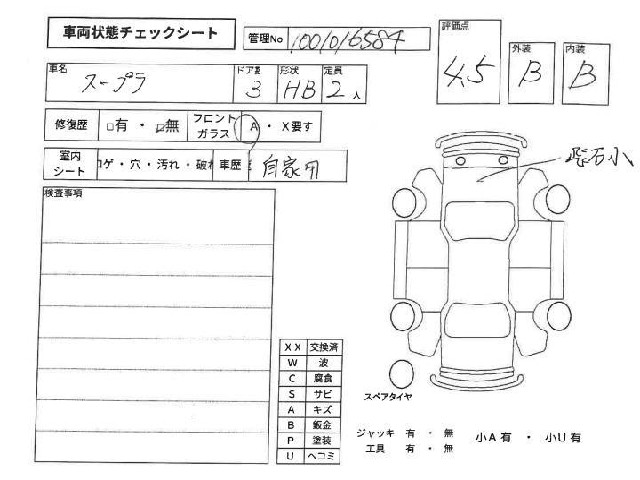 車両状態チェックシート
管理No 1001016584
評価点 4.5
外装 B
内装 B
車名 スープラ
ドア数 3 形状 HB 定員 2 人
修復歴 □有・☑無 フロントガラス A・X要す
室内シート コゲ・穴・汚れ・破れ 車歴 自家用
検査事項
飛石小
XX 交換済
W 波
C 腐食
S サビ
A キズ
B 鈑金
P 塗装
U ヘコミ
スペアタイヤ
ジャッキ 有・無
工具 有・無
小A有・小U有